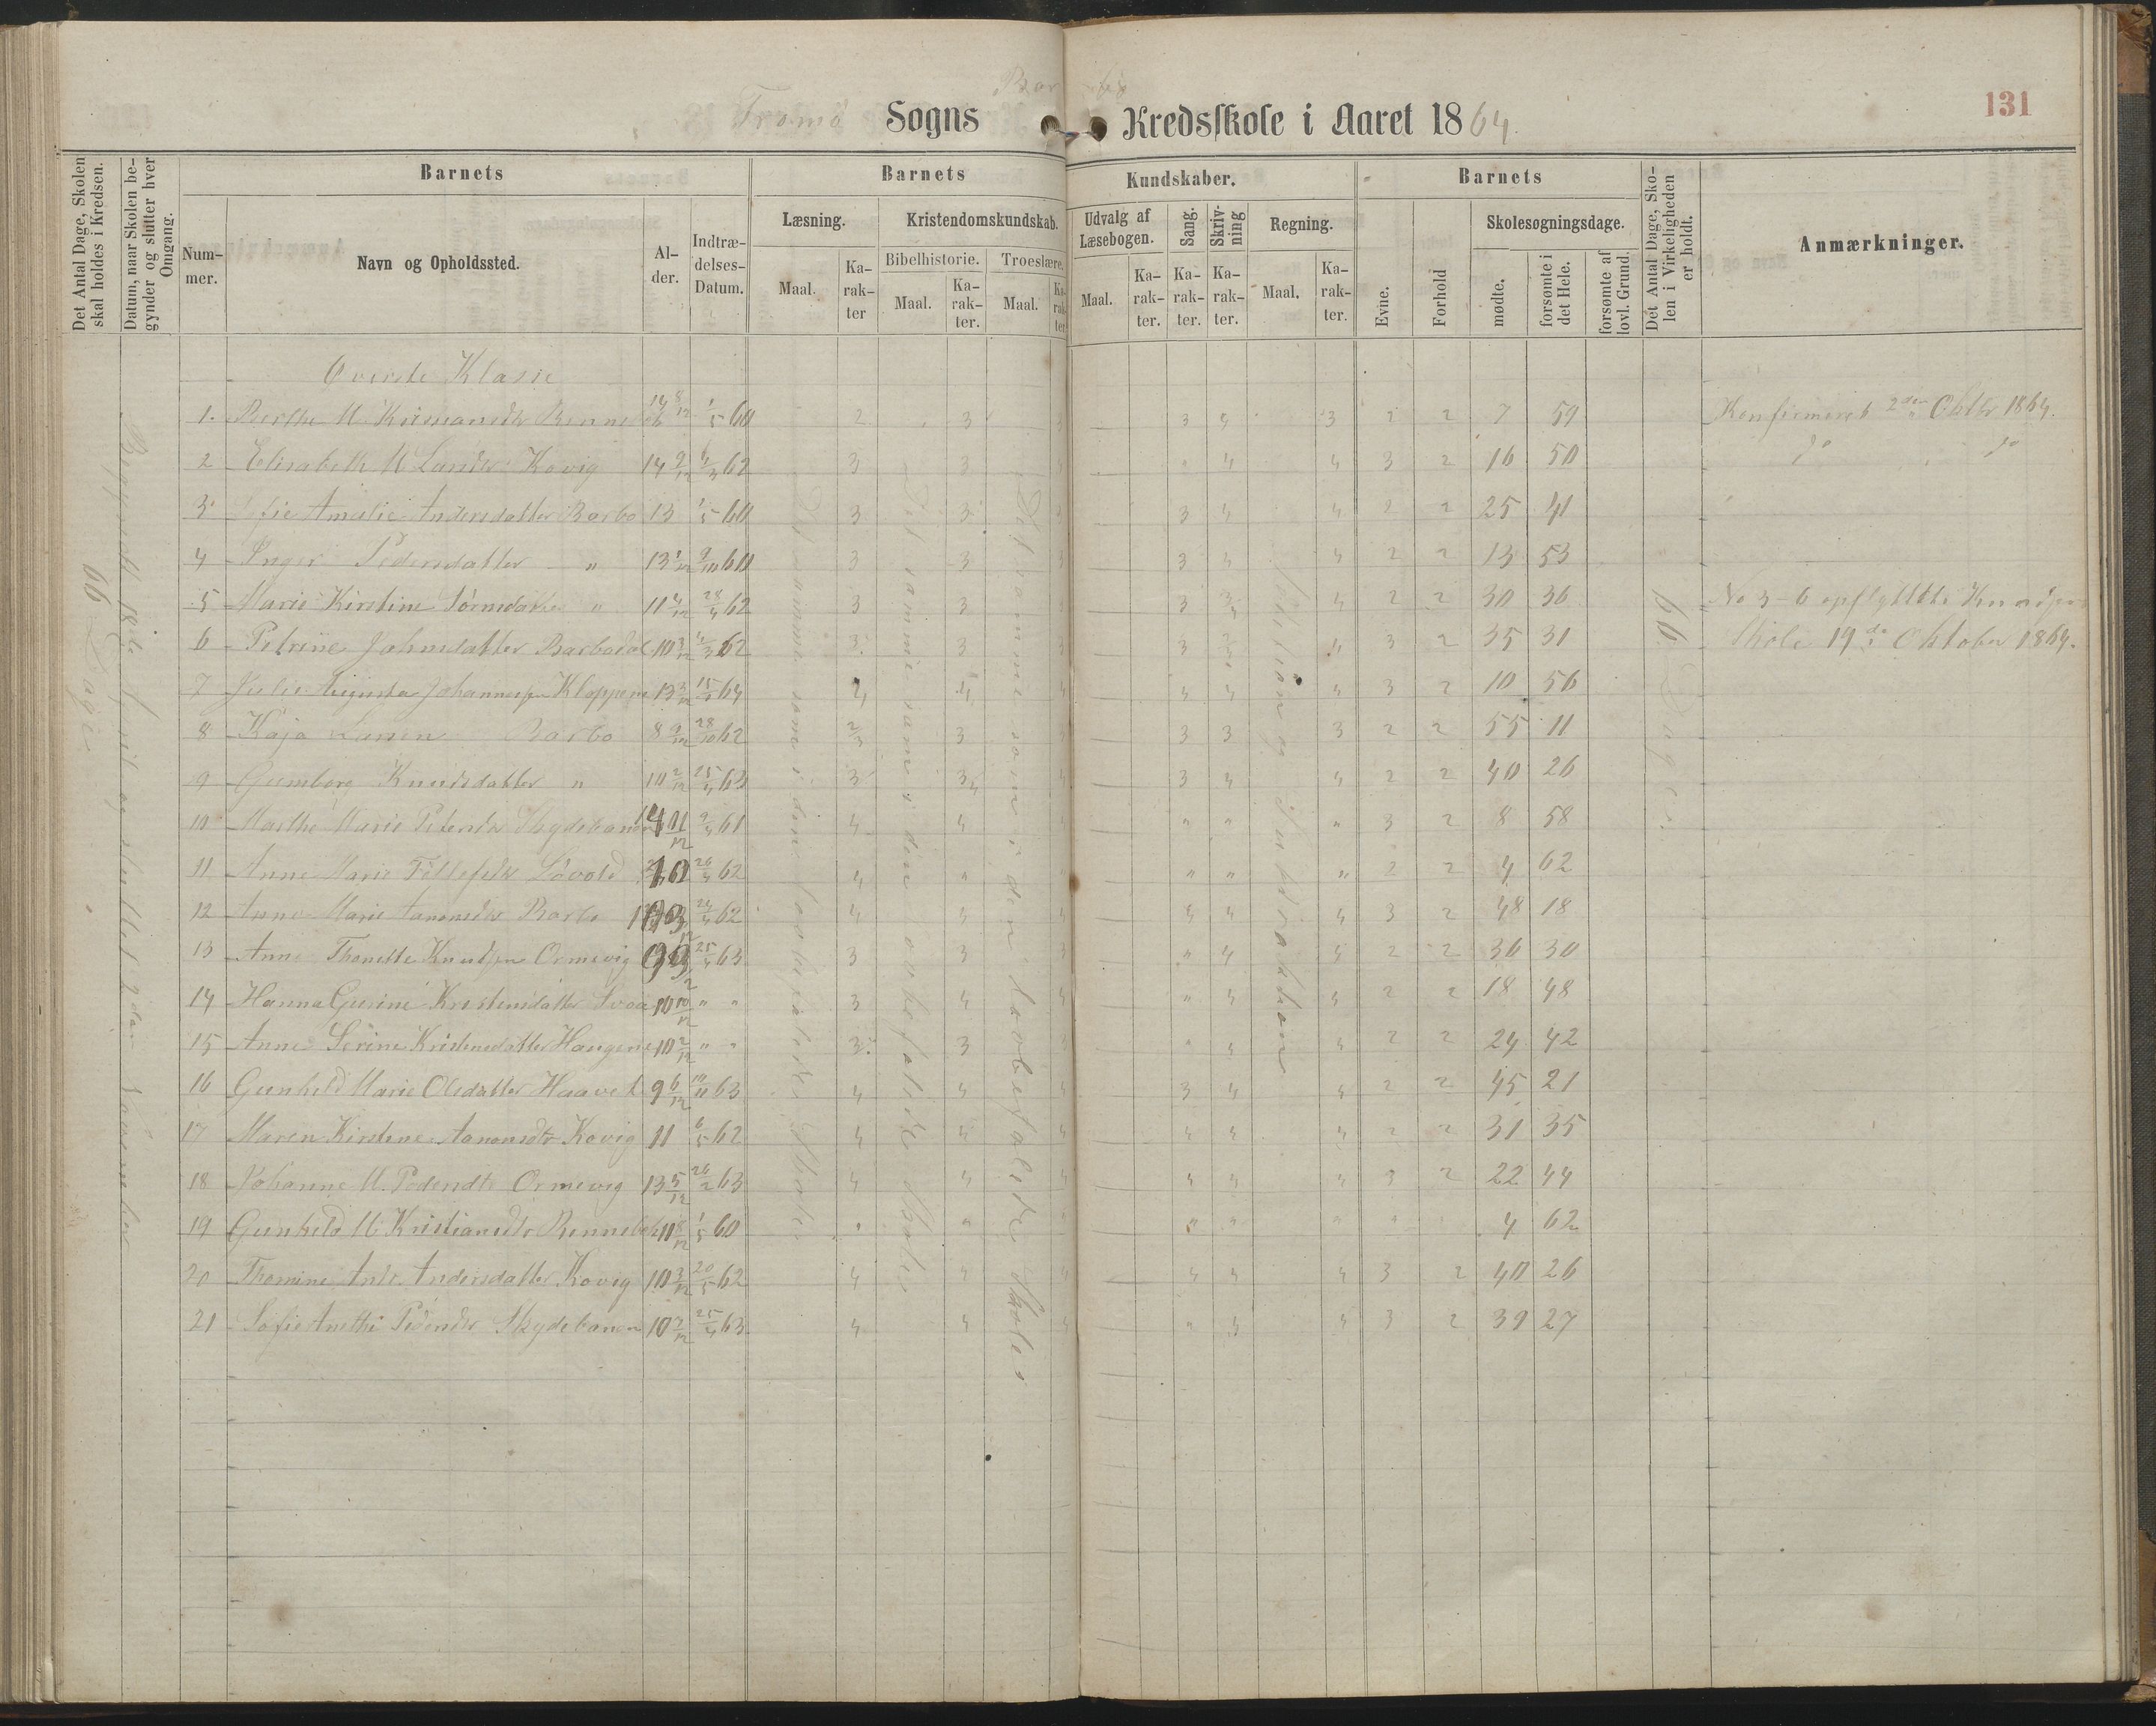 131
Tromø Sogns Kredsskole i Aaret 1864.
Det Antal Dage, Skolen skal holdes i Kredsen.
Datum, naar Skolen begynder og slutter hver Omgang.
Barnets
Nummer.
Navn og Opholdssted.
Alder.
Indtrædelses-Datum.
Barnets Kundskaber.
Læsning.
Maal.
Karakter
Kristendomskundskab.
Bibelhistorie.
Maal.
Karakter.
Troeslære.
Maal.
Karakter
Udvalg af Læsebogen.
Maal.
Karakter.
Sang.
Karakter.
Skrivning
Karakter.
Regning.
Maal.
Karakter.
Barnets
Evne.
Forhold
Skolesøgningsdage.
mødte.
forsømte i det Hele.
forsømte af lovl. Grund.
Det Antal Dage, Skolen i Virkeligheden er holdt.
Anmærkninger.
66 Dage
66 Dage
Det samme som i den lovbefalede Skole
Det samme som i den lovbefalede Skole
Det samme som i den lovbefalede Skole
Addition og Subtraktion
Øverste Klasse
1. 14 8/12 1/5 60 2 3 3 4 3 2 2 7 59 Konfirmeret 2den Oktbr 1864.
2 Elisabeth M. Kovig 14 9/12 62 3 3 " 4 4 3 2 16 50 do do
3 Sofie Amalie Andersdatter Barbo 13 1/5 60 3 3 3 4 4 2 2 25 41
4 Inger Pedersdatter " 13 60 3 3 3 4 4 2 2 13 53
5 Marie Kirstine " 11 4/12 28/4 62 3 3 3 4 2 2 30 36 No 3-6 opflyttede
6 Petrine Johnsdatter 10 3/12 62 3 3 3 4 3 2 35 31 Skole 19de Oktober 1864.
7 Julie Augusta 13 3/12 64 4 4 4 4 4 3 2 10 56
8 Kaja Larsen Barbo 8 9/12 28/10 62 3 3 3 3 2 2 55 11
9 Gumborg Knudsdatter " 10 2/12 25/4 63 3 3 4 4 2 2 40 26
10 Marthe Marie Skydebanen 14 11/12 61 4 4 " " " 3 2 8 58
11 Anne Marie 10 26/4 62 4 " " " " 2 2 4 62
12 Anne Marie Barbo 62 4 4 4 4 4 3 2 48 18
13 Anne Thonette Knudsen Ormevig 9 25/4 63 3 3 " 4 4 2 2 36 30
14 Hanna Gurine Kristensdatter 10 10/12 " " 3 4 " 4 4 2 2 18 48
15 Anne Serine Kristensdatter Haugene 10 2/12 " " 3 3 " 4 4 2 2 24 42
16 Gunhild Marie Olsdatter 9 6/12 10/11 63 4 4 3 4 4 2 2 45 21
17 Maren Kirstine Kovig 11 6/5 62 4 4 4 4 4 2 2 31 35
18 Johanne M. Ormevig 13 5/12 26/2 63 4 4 4 4 4 3 2 22 44
19 Gunhild M. 11 8/12 1/5 60 " " " " " " 4 62
20 Thomine Andersdatter Kovig 10 3/12 20/5 62 4 4 4 4 4 3 2 40 26
21 Sofie Anethe Skydebanen 10 2/12 25/4 63 4 4 " 4 4 3 2 39 27